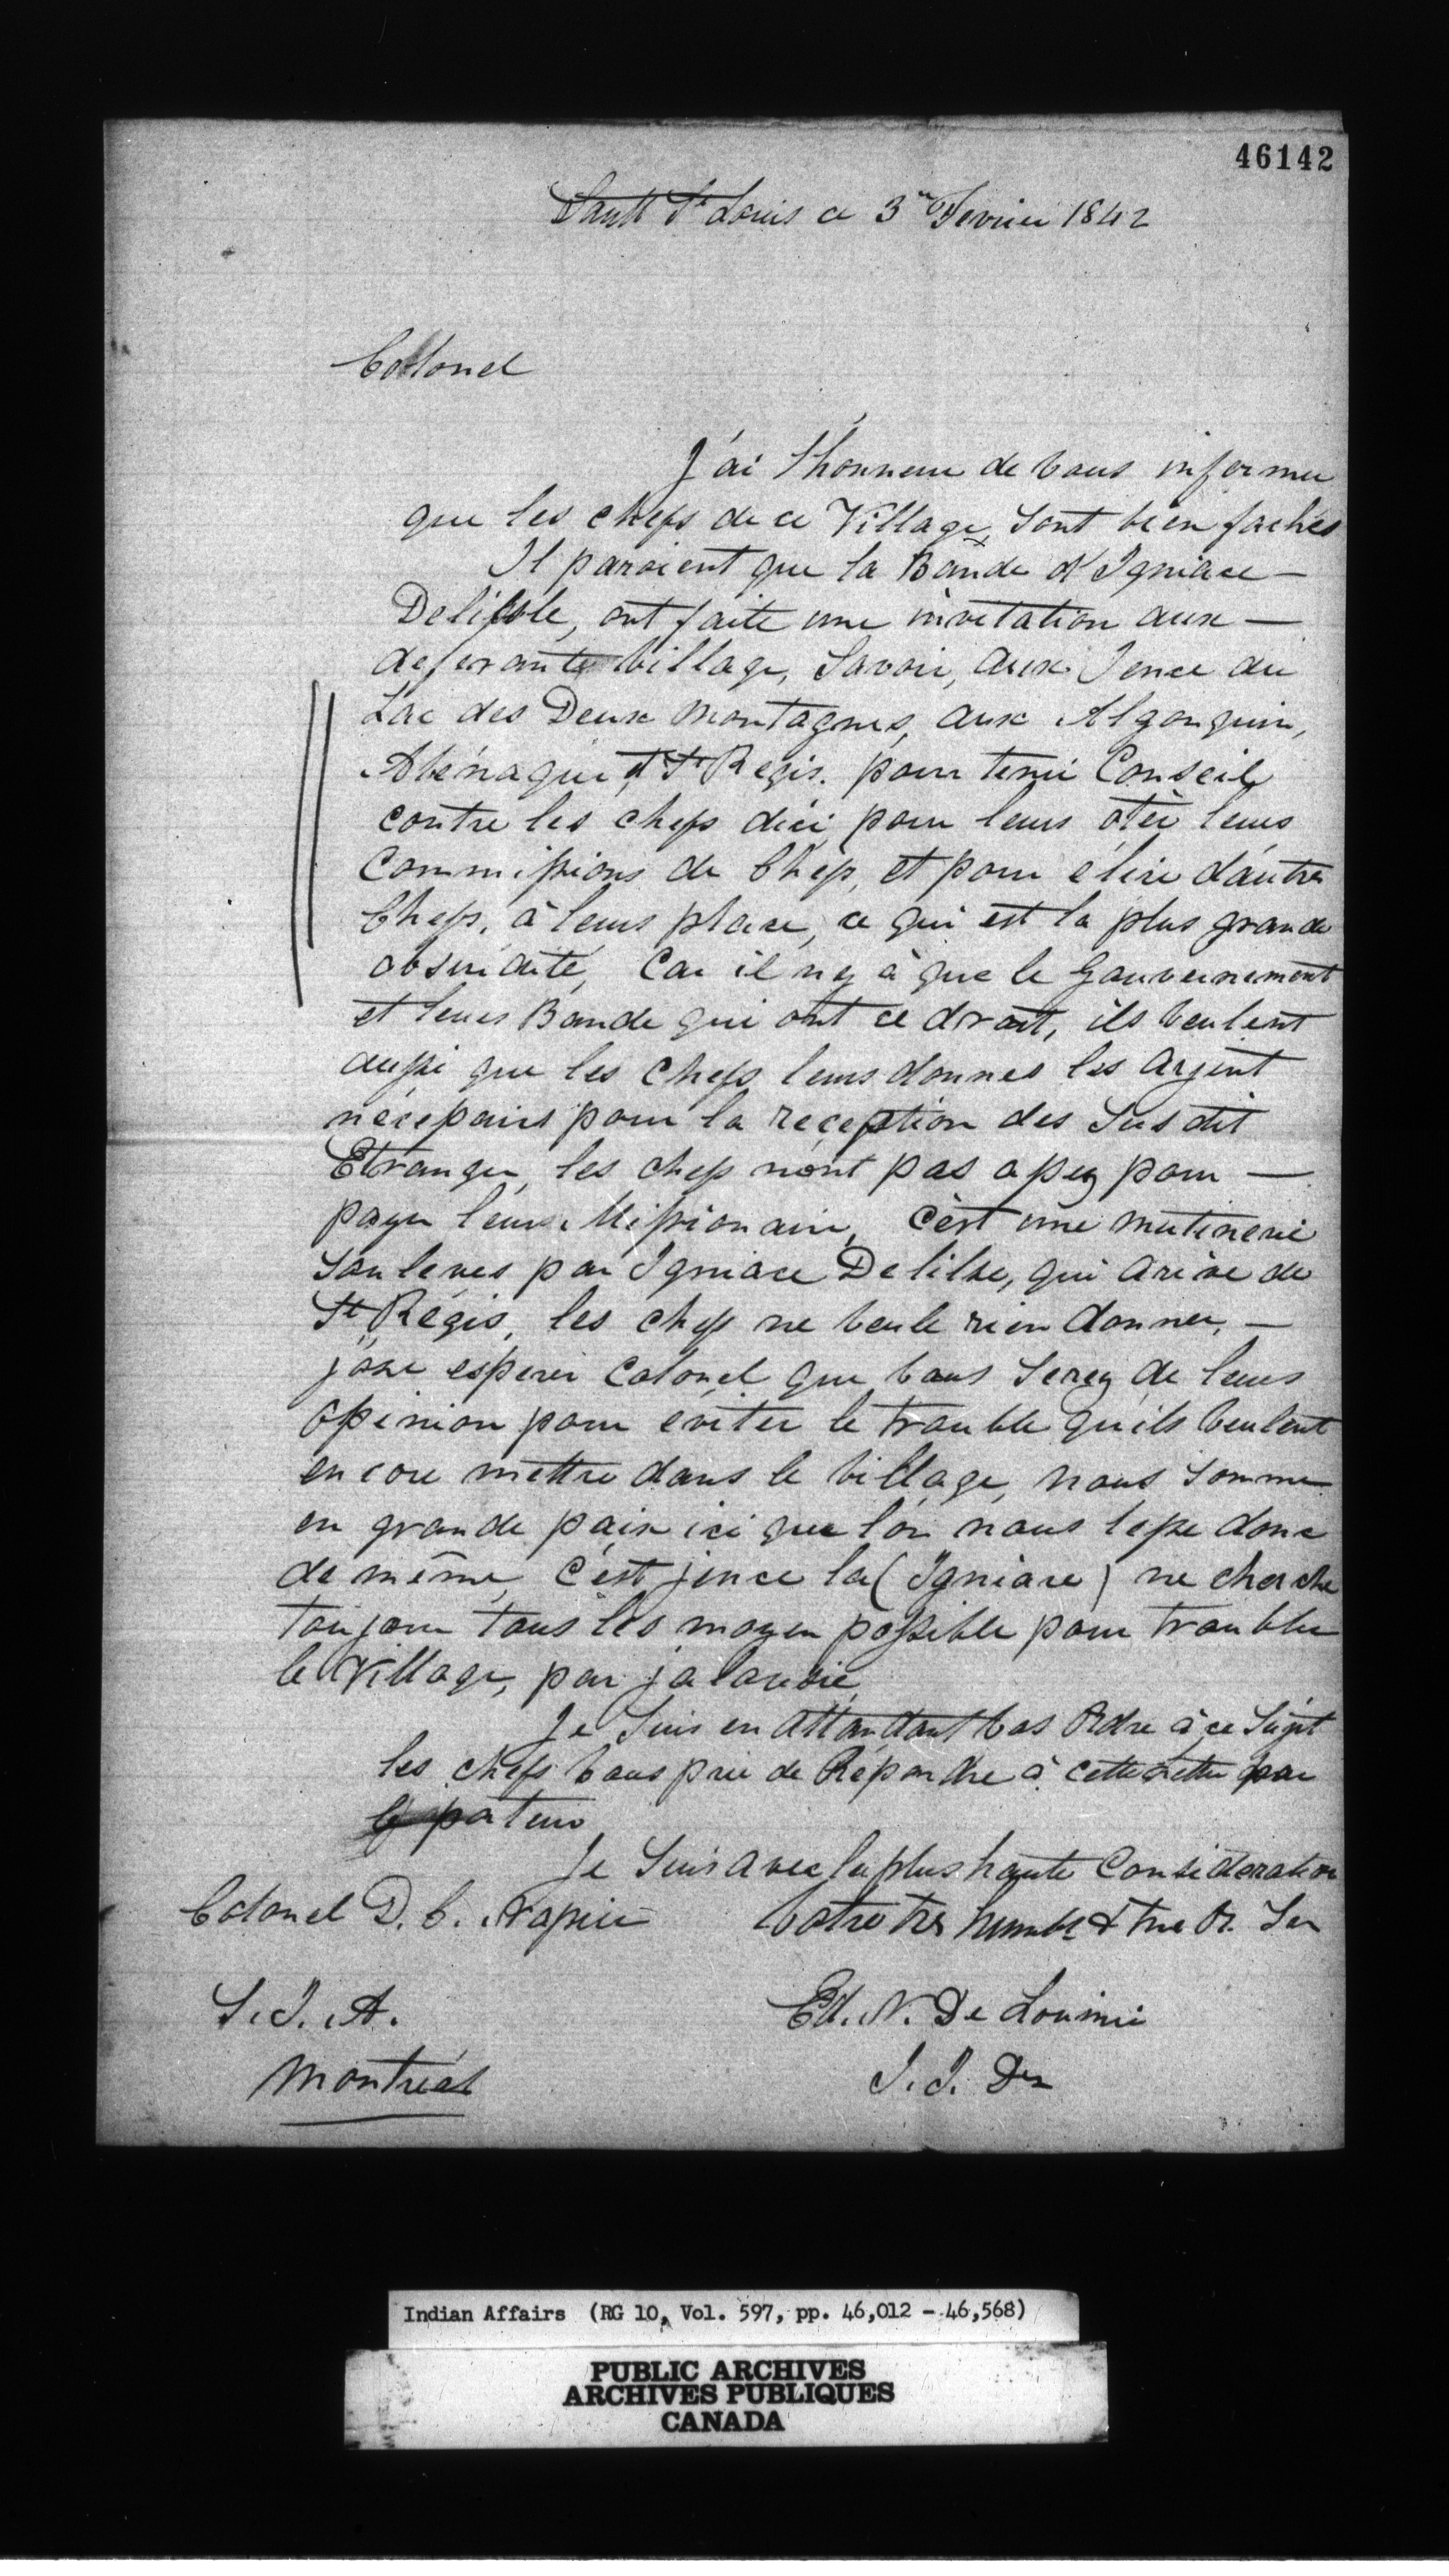 46142
Sault St Louis ce 3me Fevrier 1842
Collonel
J'ai l'honneur de vous informer
que les chefs de ce Village, sont bien fachés
Il paroient que la Bande d'Igniace —
Delisle, ont faite une invitation aux —
deferante village, Savoir, aux Jence du
Lac des Deux Montagnes, aux Algonquin,
Abénaqui, et St Regis. pour tenir Conseil
contre les chefs d'ici pour leurs oter leurs
Commissions de Chefs, et pour élire d'autre
Chefs, à leurs place, ce qui est la plus grande
absurdité, Car il n'y à que le Gouvernement
et leurs Bande qui ont ce droit, ils veulent
aussi que les chefs leurs donnes les argent
nécessairs pour la reception des Susdit
Etranger, les chefs n'ont pas assez pour —
payer leurs Missionaire, C'est une mutinerie
Souleves par Igniace Delisle, qui arive de
St Régis, les chefs ne veule rien donner, —
j'ose esperer Colonel que vous Serez de leurs
Opinion pour eviter le trouble qu'ils veulent
encore mettre dans le village, nous somme
en grande paix ici que l'on nous lesse donc
de même, C'est jence la (Igniace) ne cherche
toujour tous les moyen possible pour troubler
le Village, par jalousie
Je Suis en attandant vos Ordre à ce Sujet
les chefs vous prie de Répondre à cette lettre par
le porteur
Je Suis avec la plus haute Consideration
Colonel D. C. Napier Votre tres humble & tres Ob. Ser
S. I. A. Ed. N. De Lorimier
Montréal I. I. Dn
Indian Affairs (RG 10, Vol. 597, pp. 46,012 - 46,568)
PUBLIC ARCHIVES
ARCHIVES PUBLIQUES
CANADA